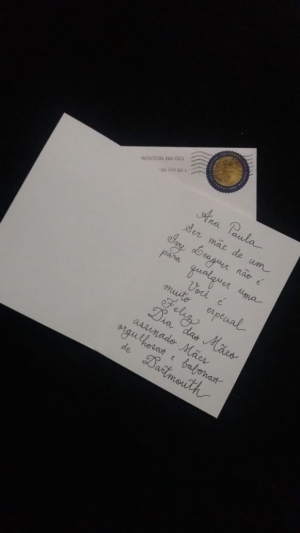 Ana Paula
Ser mãe de um
Ivy Leaguer não é
para qualquer uma
Você é
muito especial
Feliz
Dia das Mães
assinado Mães
orgulhosas e babonas
de Dartmouth